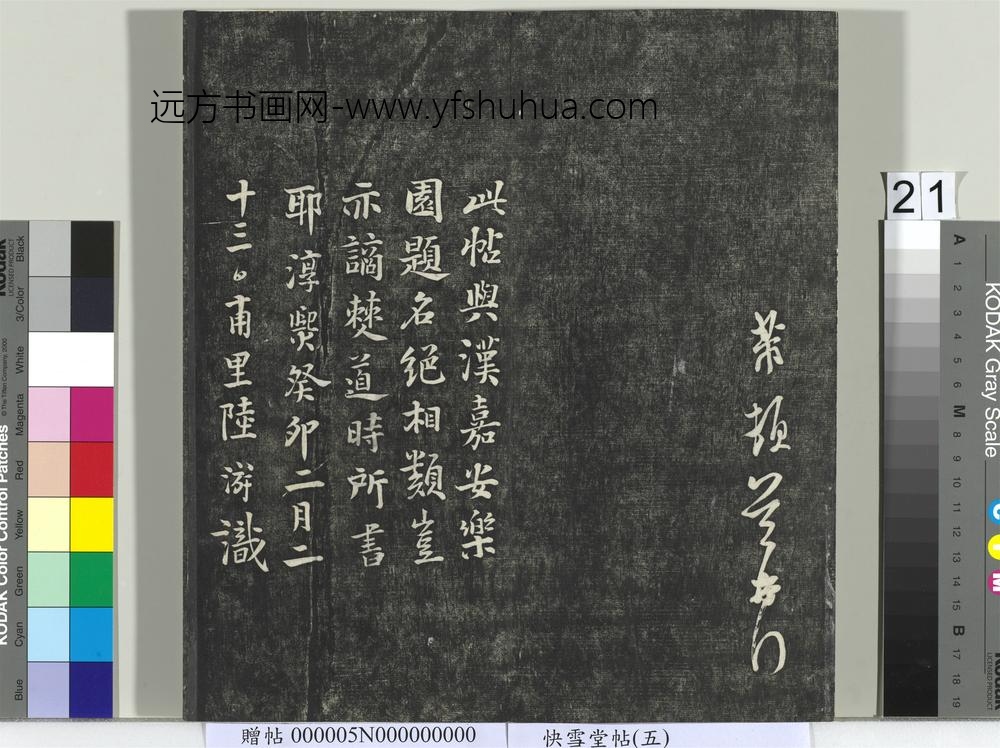 远方书画网-www.yfshuhua.com
21
此帖與漢嘉安樂
園題名絕相類豈
亦謫僰道時所書
耶淳熙癸卯二月二
十三日甫里陸游識
頓首
贈帖 000005N000000000
快雪堂帖(五)
KODAK Color Control Patches
Blue
Cyan
Green
Yellow
Red
Magenta
White
3/Color
Black
KODAK Gray Scale
A 1 2 3 4 5 6 M 8 9 10 11 12 13 14 15 B 17 18 19
C Y M